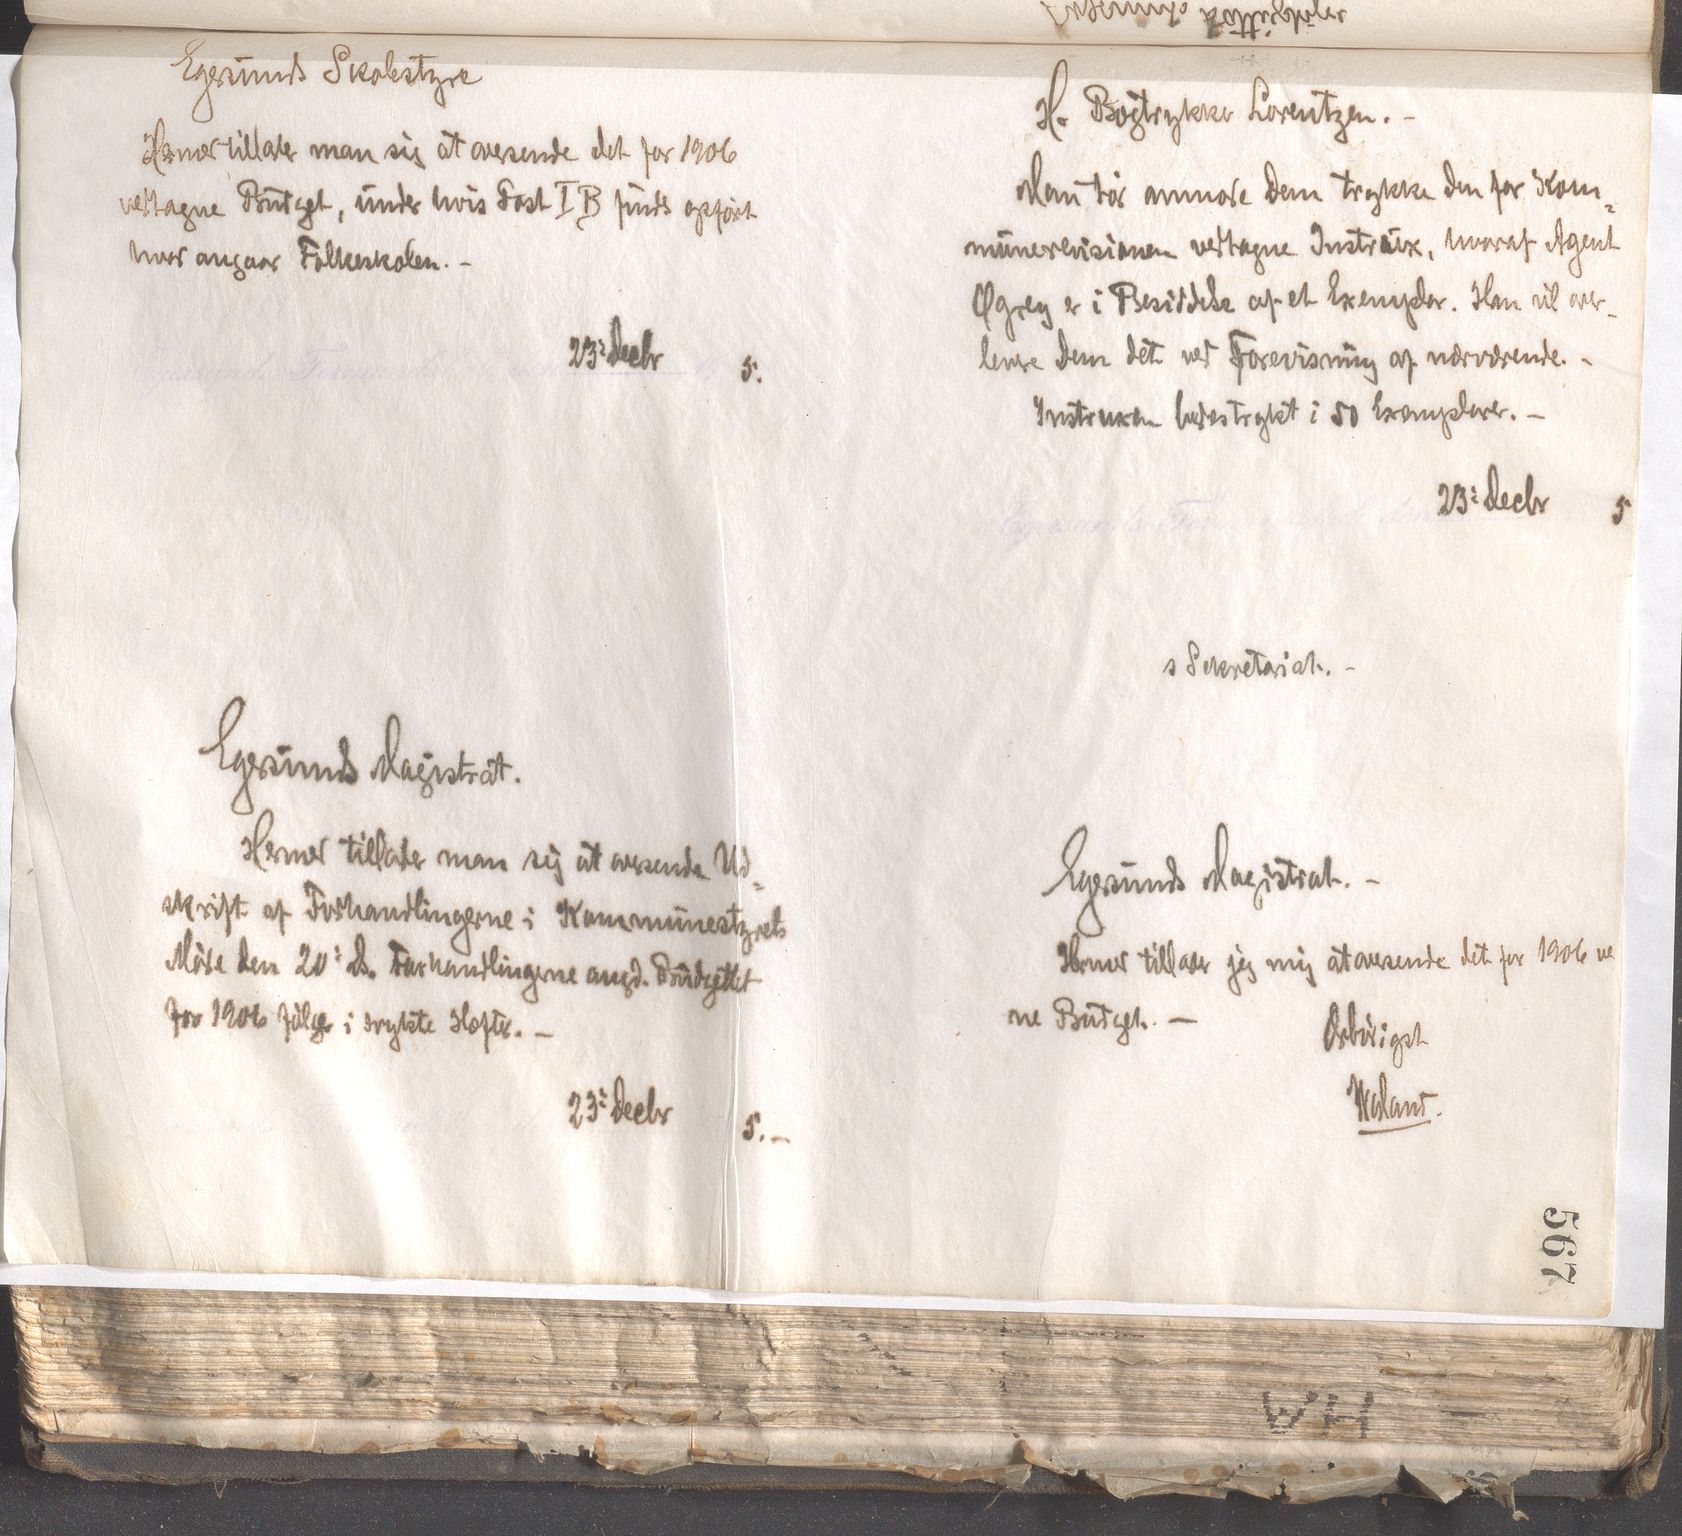 Egersunds Skolestyre
Hermed tillader man sig at oversende det for 1906
vedtagne Budget, under hvis Post I B findes opført
hvad angaar Folkeskolen. -
23: Decbr 5.
Egersunds Magistrat.
Hermed tillader man sig at oversende Ud=
skrift af Forhandlingerne i Kommunestyrets
Møde den 20: ds. Forhandlingerne angd. Budgettet
for 1906 følger i trykte Hefter. -
23: Decbr 5. -
H. Bogtrykker Lorentzen. -
Man tør anmode Dem trykke den for Kom=
munerevisionen vedtagne Instrux, hvoraf Agent
Øgrey er i Besiddelse af et Exemplar. Han vil over-
levere Dem det ved Forevisning af nærværende. -
Instruxen bedes trykt i 50 Exemplarer. -
Egersunds Formandskab den
23: Decbr 5
s Sekretariat. -
Egersunds Magistrat. -
Hermed tillader jeg mig at oversende det for 1906 ve
ne Budget. -
Ærbødigst
567